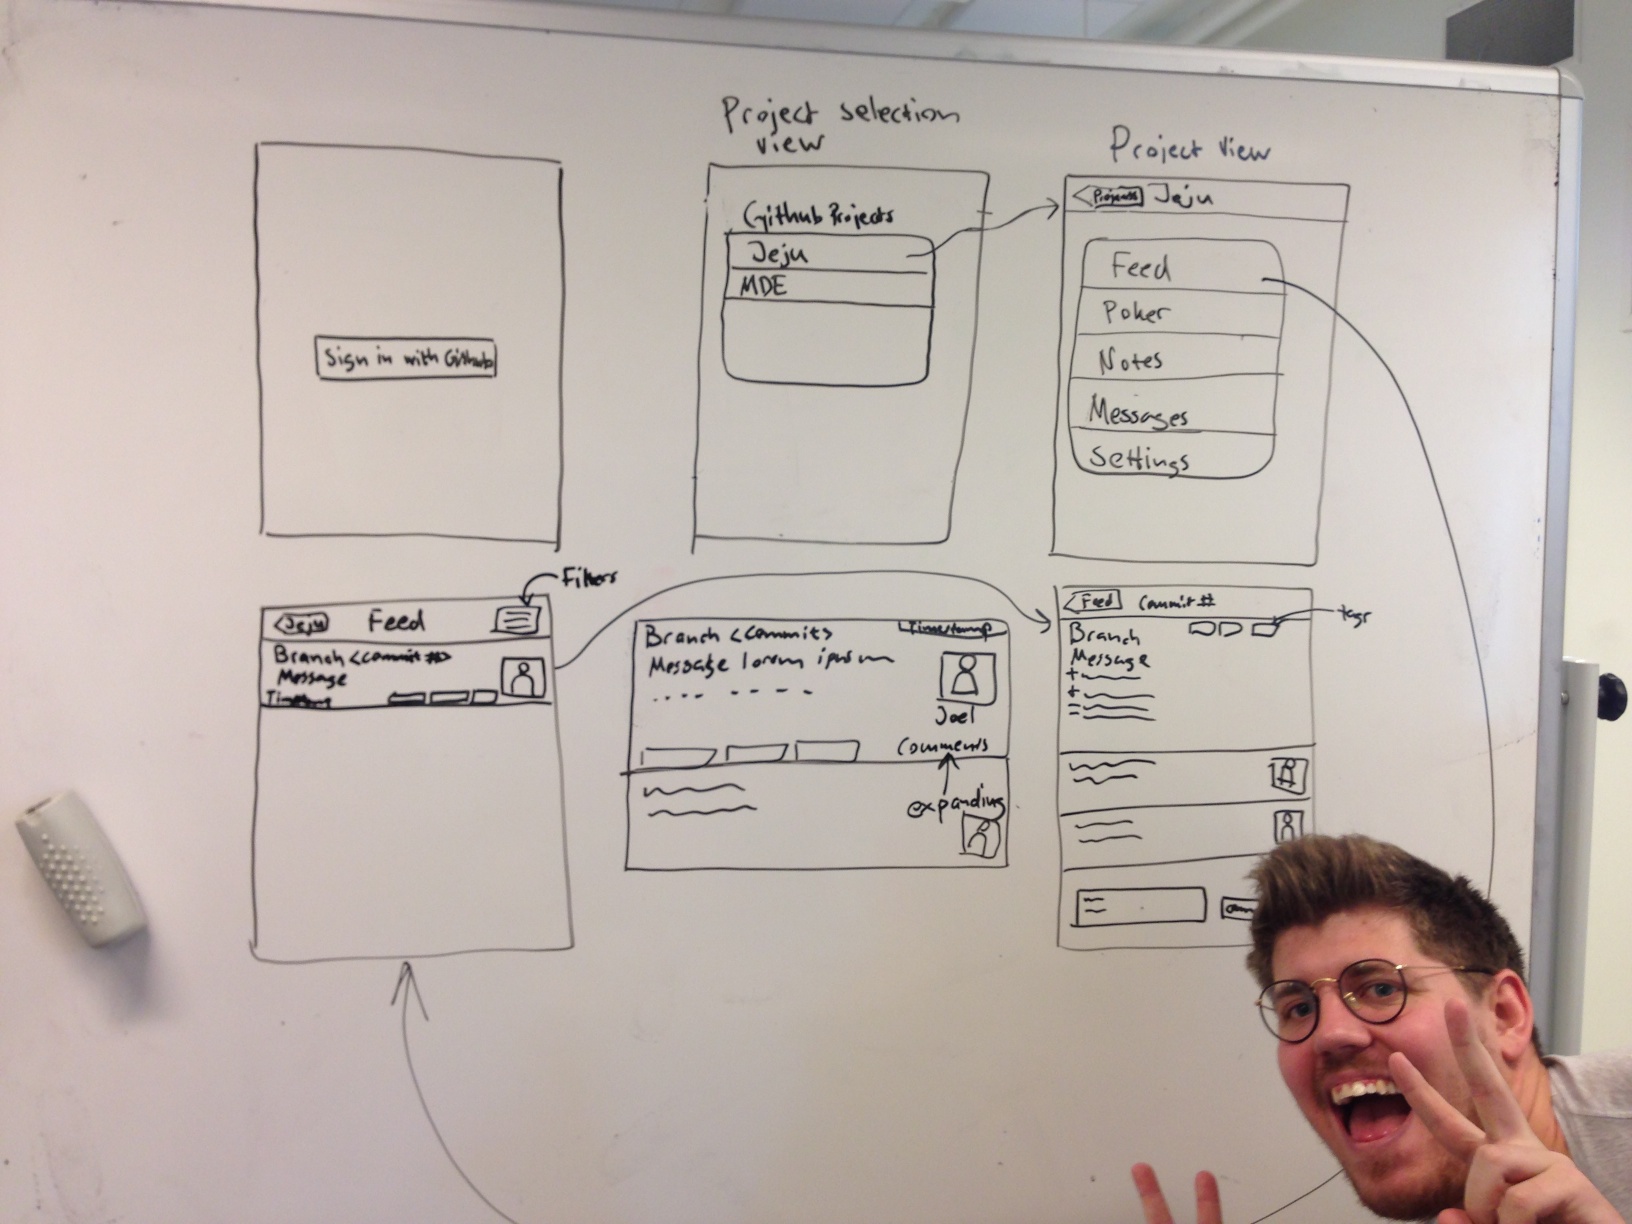 Project selection
view
Project view
Sign in with Github
Github Projects
Jeju
MDE
Projects
Jeju
Feed
Poker
Notes
Messages
Settings
Filters
Jeju
Feed
Branch <commit #>
Message
Timestamp
Branch <commit>
Timestamp
Message lorem ipsum
Joel
Comments
expanding
Feed
Commit #
tags
Branch
Message